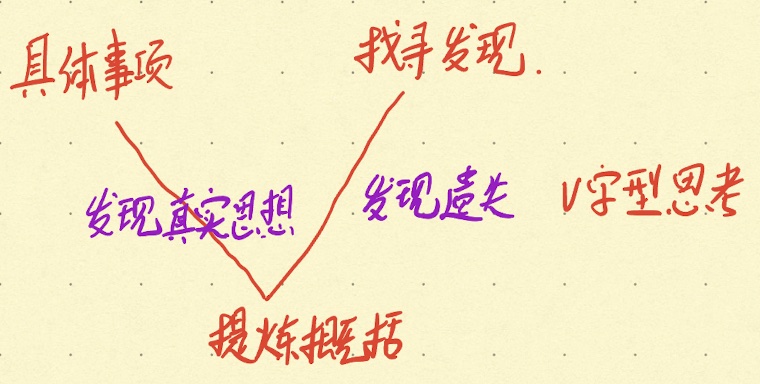 具体事项
找寻发现.
发现真实思想
发现遗失
V字型思考
提炼概括